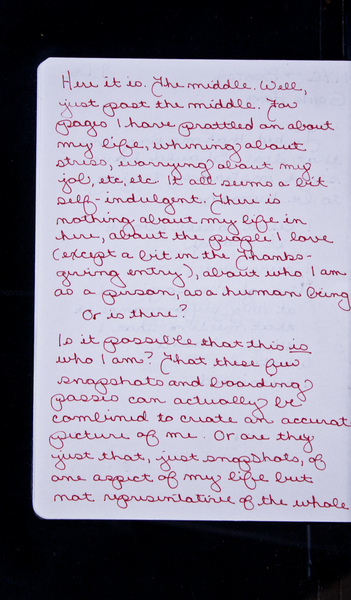 Here it is. The middle. Well,
just past the middle. For
pages I have prattled on about
my life, whining about
stress, worrying about my
job, etc, etc. It all seems a bit
self-indulgent. There is
nothing about my life in
here, about the people I love
(except a bit in the Thanks-
giving entry), about who I am
as a person, as a human being
Or is there?
Is it possible that this is
who I am? That these few
snapshots and boarding
passes can actually be
combined to create an accurat
picture of me. Or are they
just that, just snapshots, of
one aspect of my life but
not representative of the whole